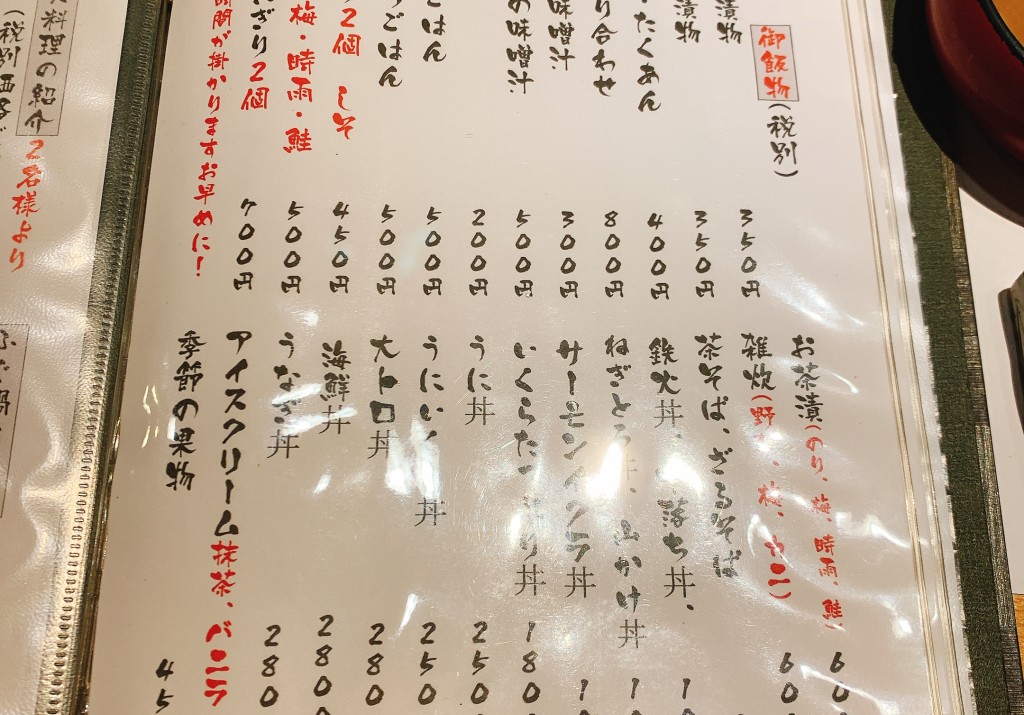 御飯物(税別)
漬物
350円
漬物
350円
・たくあん
400円
り合わせ
800円
味噌汁
300円
の味噌汁
500円
ごはん
200円
ごはん
500円
500円
2個 しそ
450円
梅・時雨・鮭
500円
にぎり2個
700円
時間が掛かりますお早めに!
お茶漬(のり、梅、時雨、鮭)
60
雑炊(野 、梅、カニ)
60
茶そば、ざるそば
鉄火丼、 落ち丼、
1
ねぎとろ丼、山かけ丼
1
サーモンイクラ丼
1
いくらた 丼
180
うに丼
250
うにい 丼
250
大トロ丼
280
海鮮丼
280
うなぎ丼
280
アイスクリーム抹茶、バニラ
季節の果物
45
料理の紹介 2名様より
(税別